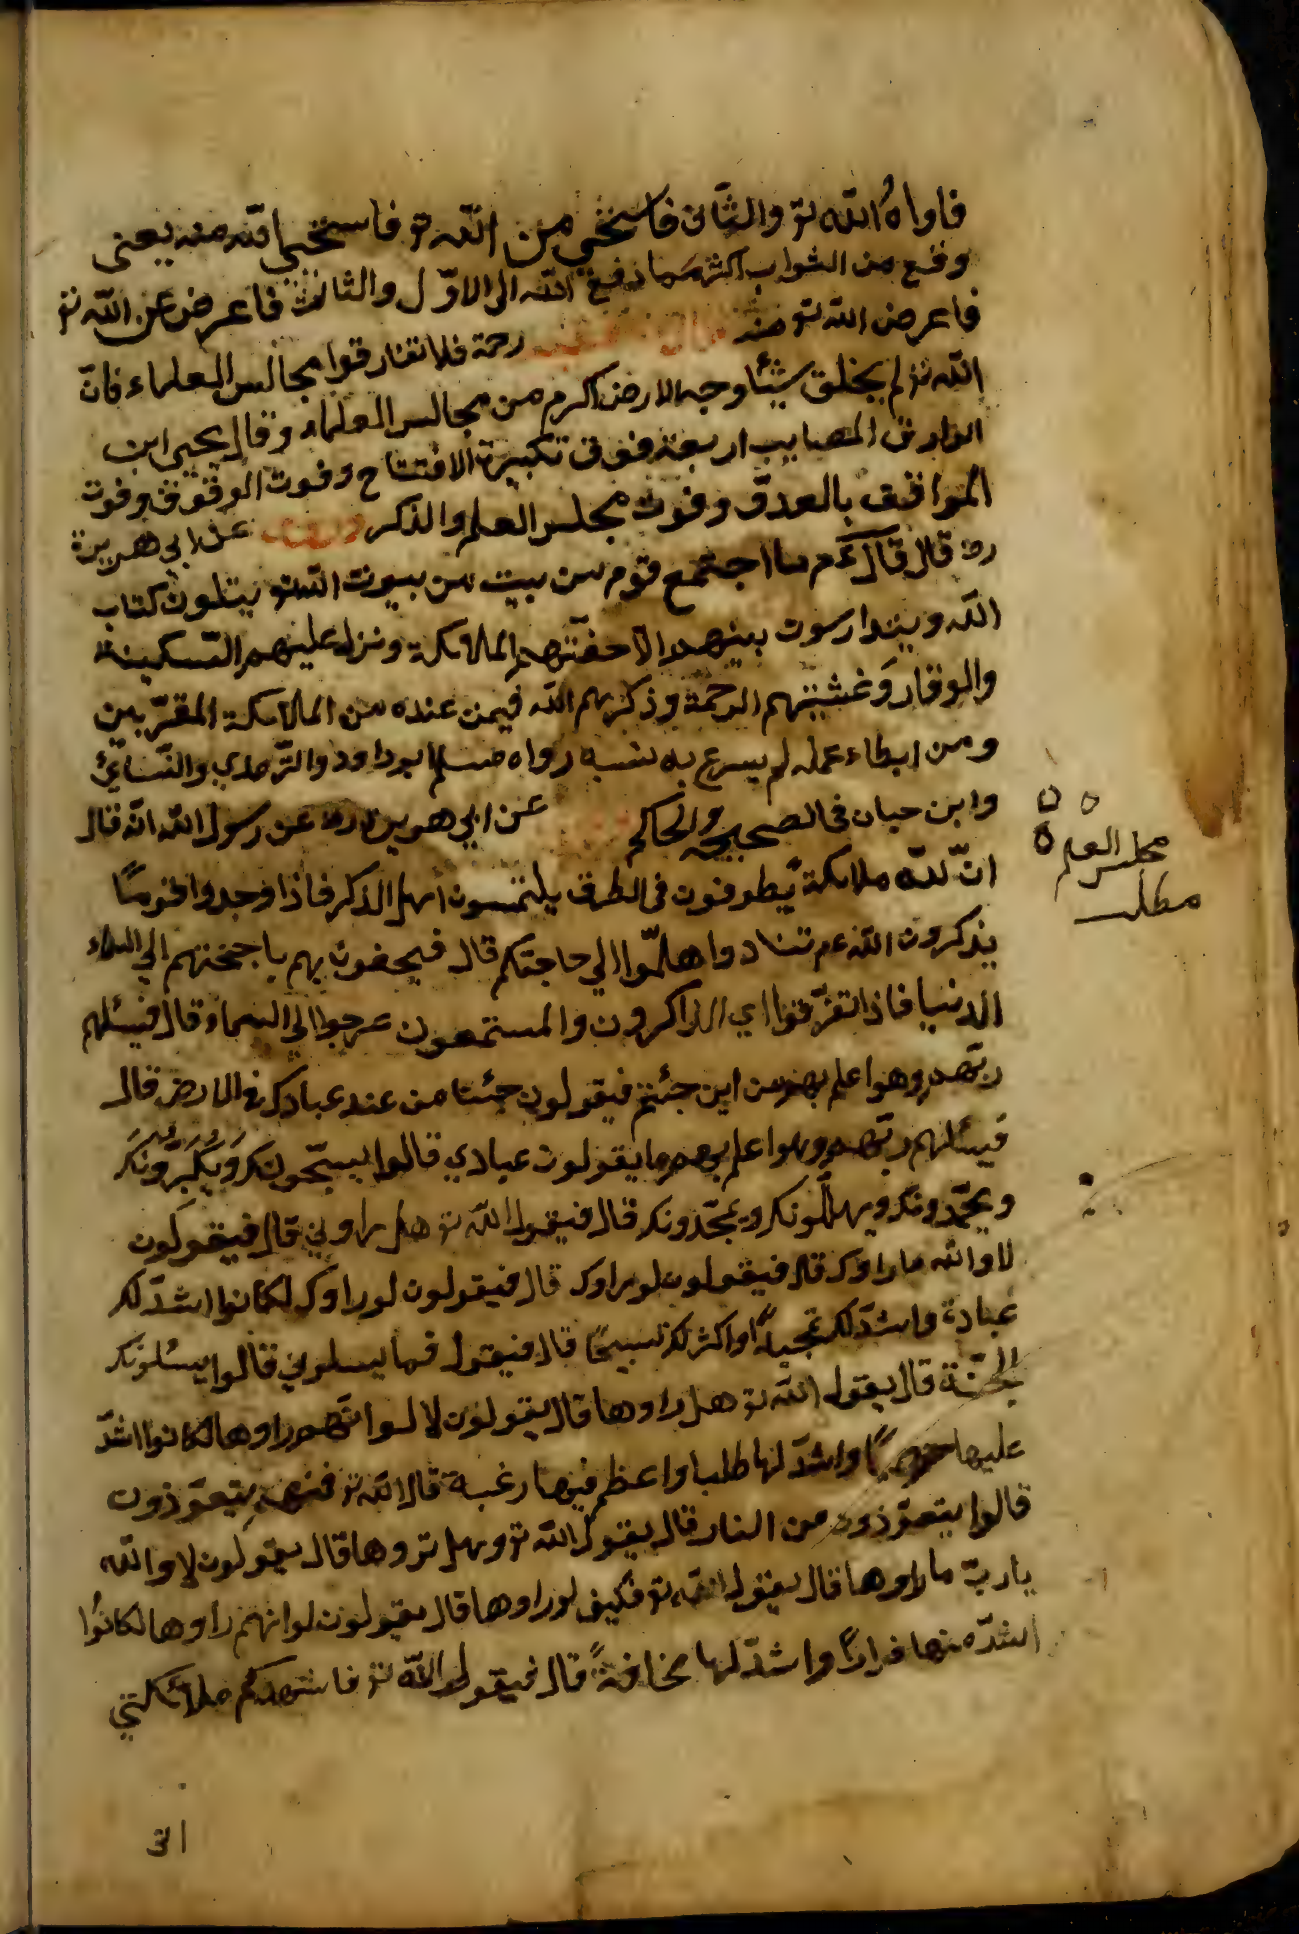 فاواهُ الله تو والثانى فاستحيى من الله تو فاستحيى الله منه يعنى
وقع من الثواب اكثر مما دفع الله الى الاوّل والثالث فاعرض عن الله تو
فاعرض الله تو عنه رحمة فلا تفارقوا مجالس العلماء فانّ
الله تو لم يخلق شيئا وجه الارض اكرم من مجالس العلماء وقال يحيى ابن
المصايب اربعة فوق تكبيرة الافتتاح وفوت الوقوف وفوت
المواقف بالعدوّ وفوت مجلس العلم والذكر عن ابي هريرة
رض قال قال ءم ما اجتمع قوم من بيت من بيوت الله تو يتلون كتاب
الله ويتدارسون بينهم الا حفّتهم الملائكة ونزل عليهم السّكينة
والوقار وغشيتهم الرحمة وذكرهم الله فيمن عنده من الملائكة المقرّبين
ومن ابطاء عمله لم يسرع به نسبه رواه مسلم ابو داود والتّرمذي والنّسائي
وابن حبان فى الصحيح والحاكم عن ابي هريرة رض عن رسول الله انّه قال
انّ لله ملائكة يطوفون فى الطرق يلتمسون اهل الذكر فاذا وجدوا قومًا
يذكرون الله عم تنادوا هلمّوا الي حاجتكم قال فيحفون بهم باجنحتهم الي السماء
الدنيا فاذا تفرّقوا اي الذاكرون والمستمعون عرجوا الي السماء قال فيسئلهم
ربّهم وهوا علم بهم من اين جئتم فيقولون جئنا من عند عبادك فى الارض قال
فيسئلهم ربّهم وهوا علم بهم ما يقولون عبادي قالوا يسبّحونك ويكبّرونك
ويحمّدونك ويهلّلونك ويمجّدونك قال فيقول الله تو هل راوني قال فيقولون
لا والله ما راوك قال فيقولون لو راوك قال فيقولون لو راوك لكانوا اشدّ لك
عبادة واشدّ لك تمجيداً واكثر لك تسبيحًا قال فيقول فما يسلوني قالوا يسئلونك
الجنّة قال يقول الله تو هل راوها قال يقولون لا لو انّهم راوها لكانوا اشدّ
عليها حرصًا واشدّ لها طلبا واعظم فيها رغبة قال الله تو فمم يتعوّذون
قالوا يتعوّذون من النار قال يقول الله تو وهل تروها قال يقولون لا والله
يا ربّ ما راوها قال يقول الله تو فكيف لو راوها قال يقولون لو انهم راوها لكانوا
اشدّ منها فرارًا واشدّ لها مخافةً قال فيقول الله تو فاشهدكم ملائكتي
مجلس العلم
مطلب
انى